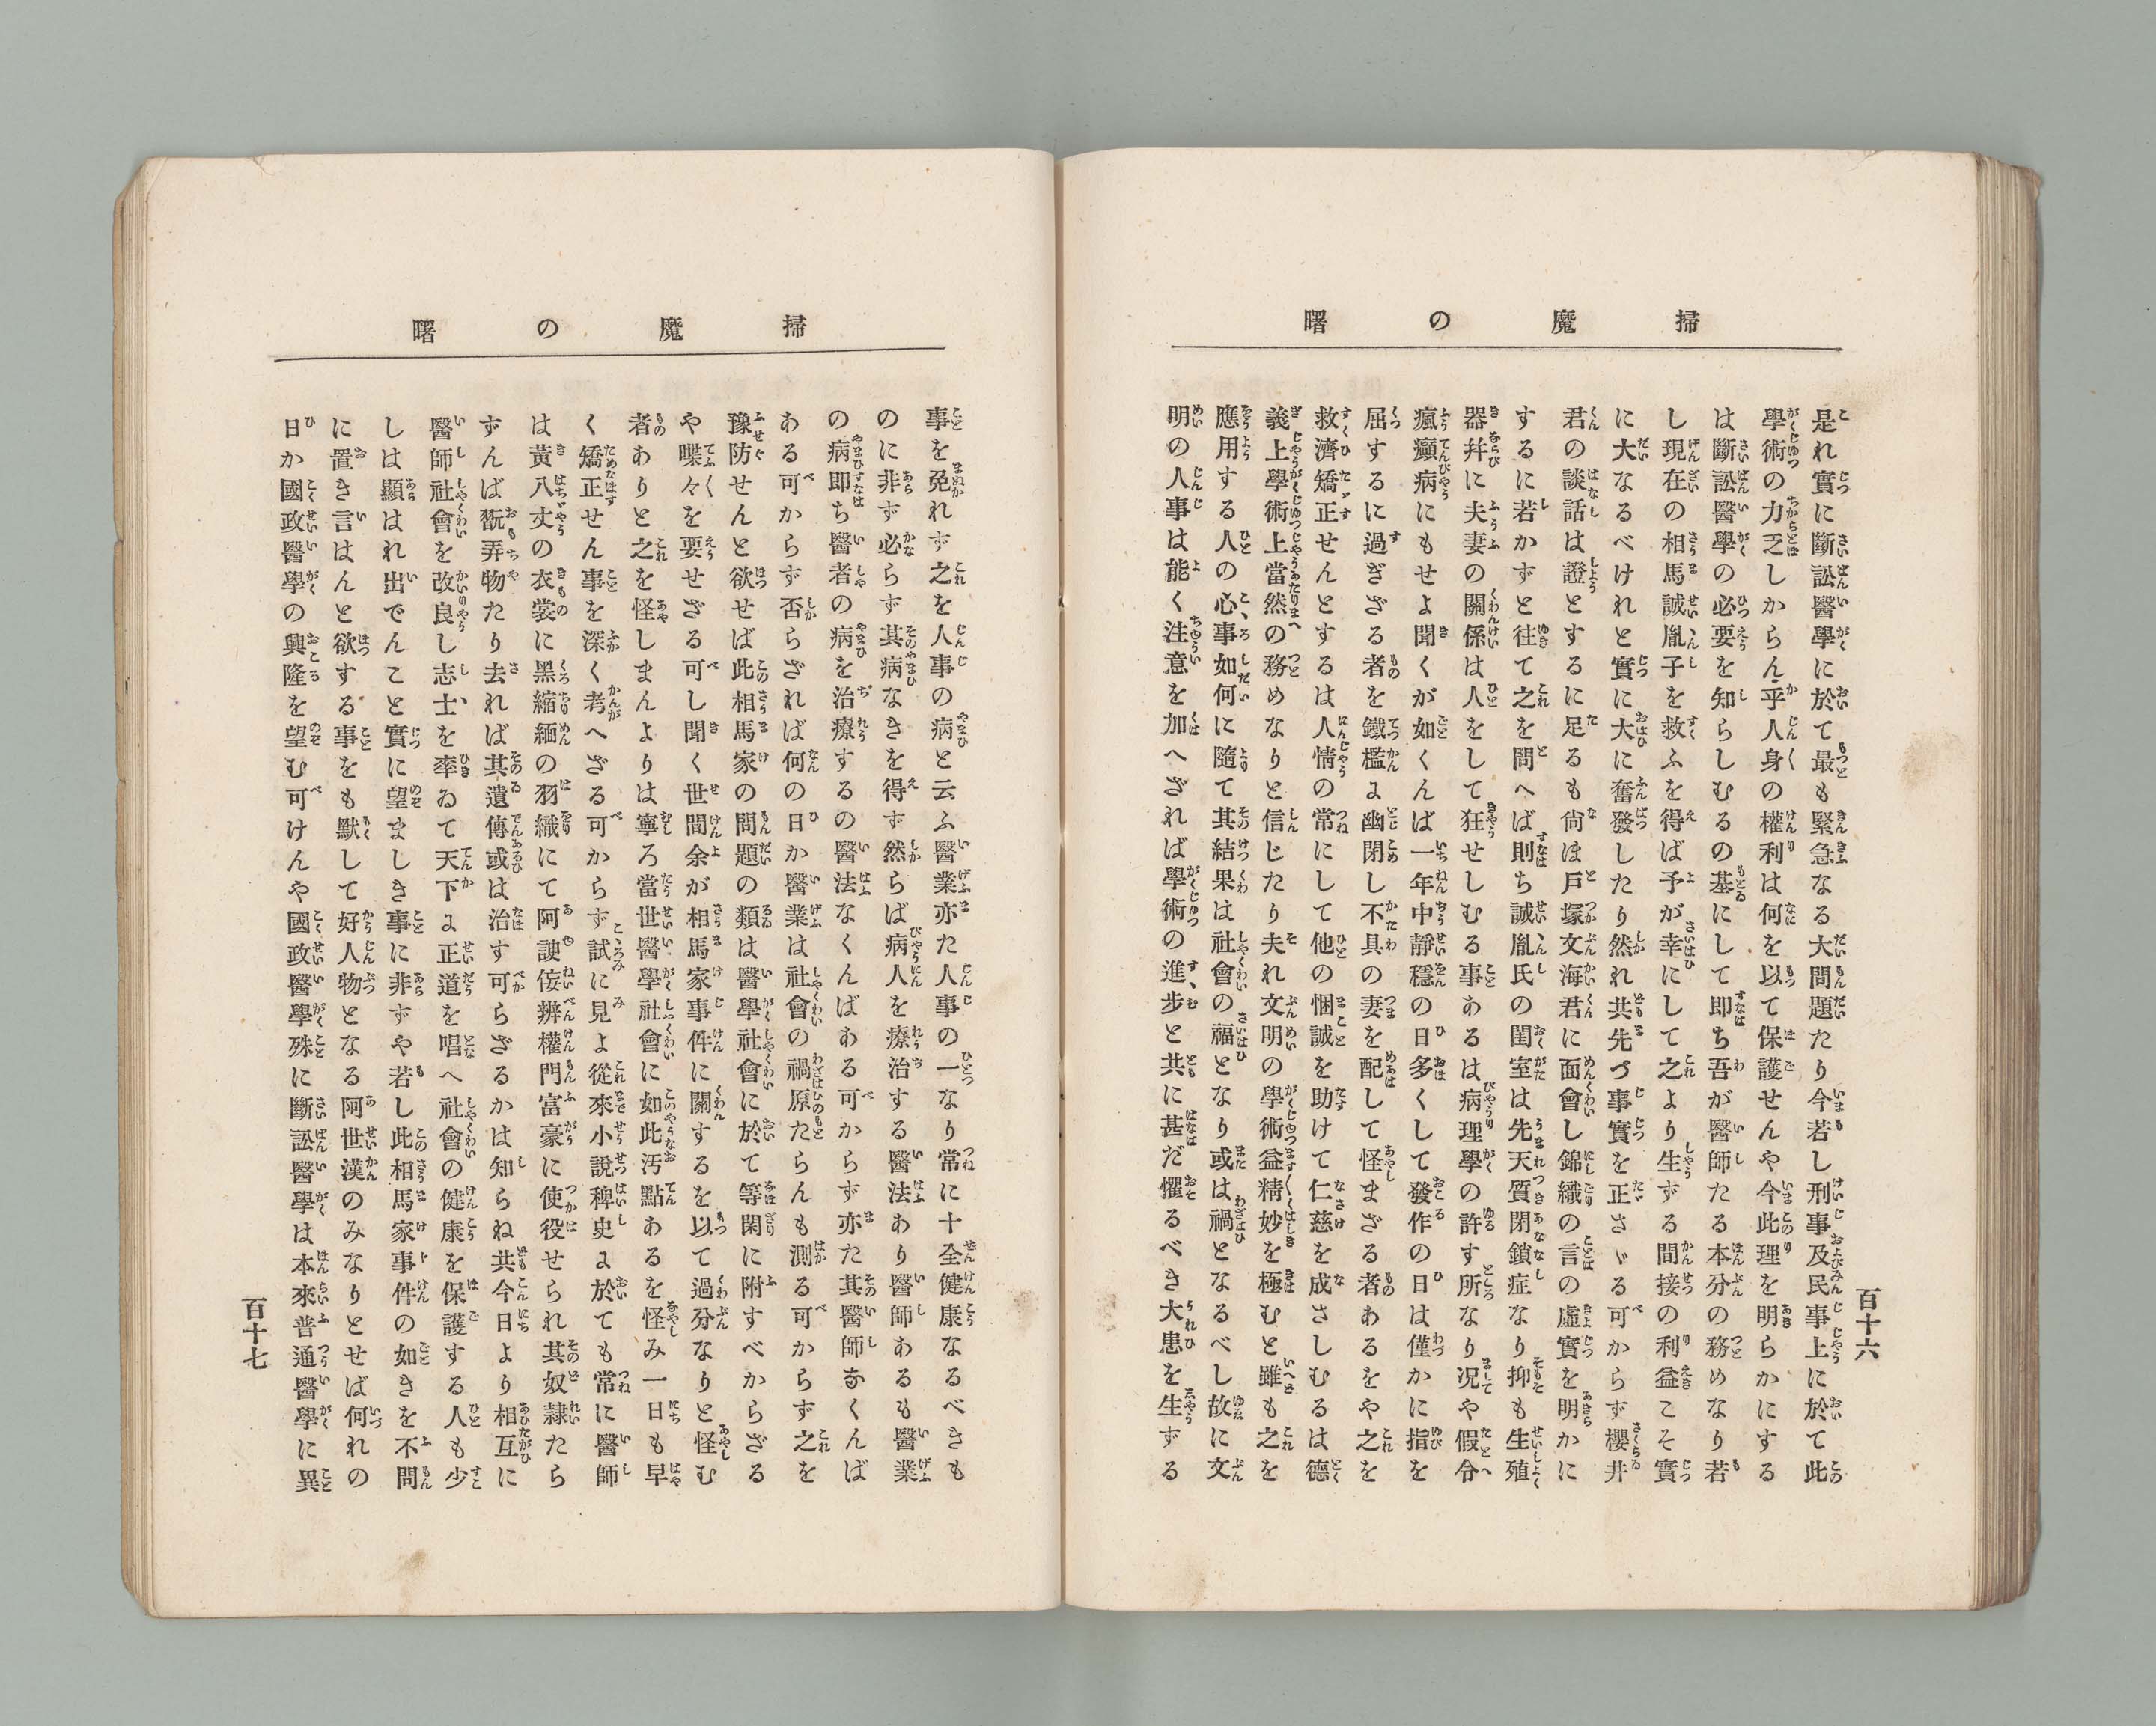 掃魔の曙
是れ實に斷訟醫學に於て最も緊急なる大問題たり今若し刑事及民事上に於て此
學術の力乏しからん乎人身の權利は何を以て保護せんや今此理を明らかにする
は斷訟醫學の必要を知らしむるの基にして即ち吾が醫師たる本分の務めなり若
し現在の相馬誠胤子を救ふを得ば予が幸にして之より生ずる間接の利益こそ實
に大なるべけれと實に大に奮發したり然れ共先づ事實を正さゞる可からず櫻井
君の談話は證とするに足るも尙は戸塚文海君に面會し錦織の言の虛實を明かに
するに若かずと往て之を問へば則ち誠胤氏の閨室は先天質閉鎖症なり抑も生殖
器幷に夫妻の關係は人をして狂せしむる事あるは病理學の許す所なり況や假令
瘋癲病にもせよ聞くが如くんば一年中靜穩の日多くして發作の日は僅かに指を
屈するに過ぎざる者を鐵檻に幽閉し不具の妻を配して怪まざる者あるをや之を
救濟矯正せんとするは人情の常にして他の悃誠を助けて仁慈を成さしむるは德
義上學術上當然の務めなりと信じたり夫れ文明の學術益精妙を極むと雖も之を
應用する人の心事如何に隨て其結果は社會の福となり或は禍となるべし故に文
明の人事は能く注意を加へざれば學術の進步と共に甚だ懼るべき大患を生ずる
百十六
掃魔の曙
事を免れず之を人事の病と云ふ醫業亦た人事の一なり常に十全健康なるべきも
のに非ず必らず其病なきを得ず然らば病人を療治する醫法あり醫師あるも醫業
の病即ち醫者の病を治療するの醫法なくんばある可からず亦た其醫師なくんば
ある可からず否らざれば何の日か醫業は社會の禍原たらんも測る可からず之を
豫防せんと欲せば此相馬家の問題の類は醫學社會に於て等閑に附すべからざる
や喋々を要せざる可し聞く世間余が相馬家事件に關するを以て過分なりと怪む
者ありと之を怪しまんよりは寧ろ當世醫學社會に如此汚點あるを怪み一日も早
く矯正せん事を深く考へざる可からず試に見よ從來小說稗史に於ても常に醫師
は黃八丈の衣裳に黑縮緬の羽織にて阿諛侫辨權門富豪に使役せられ其奴隷たら
ずんば翫弄物たり去れば其遺傳或は治す可らざるかは知らね共今日より相互に
醫師社會を改良し志士を率ゐて天下に正道を唱へ社會の健康を保護する人も少
しは顯はれ出でんこと實に望ましき事に非ずや若し此相馬家事件の如きを不問
に置き言はんと欲する事をも默して好人物となる阿世漢のみなりとせば何れの
日か國政醫學の興隆を望む可けんや國政醫學殊に斷訟醫學は本來普通醫學に異
百十七